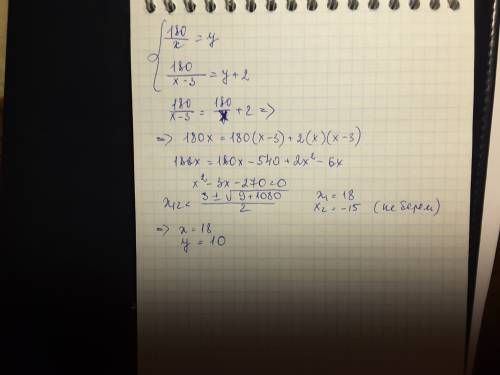 { 180/x = y
180/(x-3) = y+2
180/(x-3) = 180/x + 2 =>
=> 180x = 180(x-3) + 2(x)(x-3)
180x = 180x - 540 + 2x² - 6x
x² - 3x - 270 = 0
x₁,₂ = (3 ± √(9+1080))/2   x₁ = 18
x₂ = -15 (не берем)
=> x = 18
y = 10